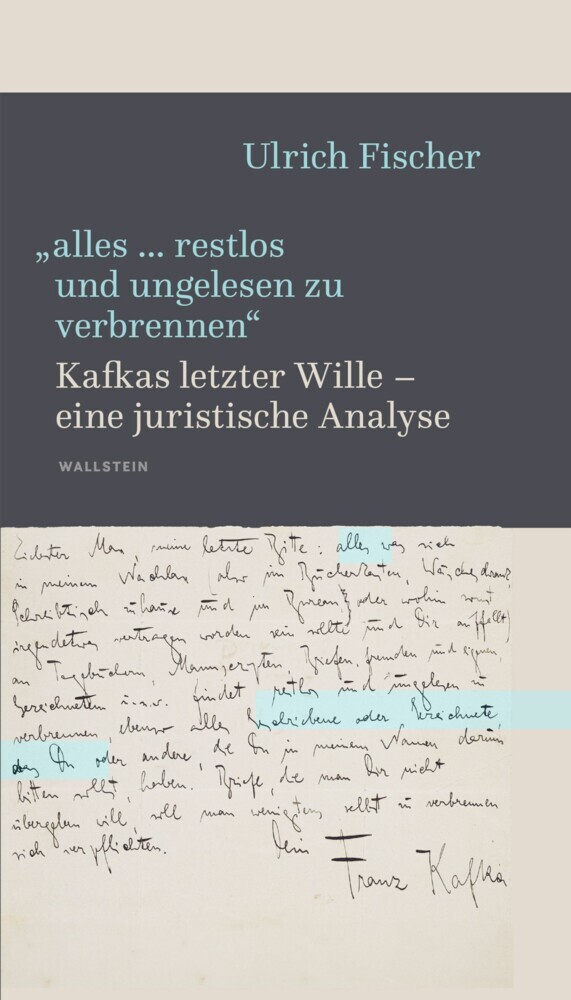 Ulrich Fischer
„alles ... restlos
und ungelesen zu
verbrennen“
Kafkas letzter Wille –
eine juristische Analyse
WALLSTEIN
Liebster Max, meine letzte Bitte: alles was sich
in meinem Nachlass (also im Bücherkasten, Wäscheschrank,
Schreibtisch zuhause und im Bureau, oder wohin sonst
irgendetwas vertragen worden sein sollte und Dir auffällt)
an Tagebüchern, Manuscripten, Briefen, fremden und eignen,
Gezeichnetem u.s.w. findet restlos und ungelesen zu
verbrennen, ebenso alles Geschriebene oder Gezeichnete,
das Du oder andere, die Du in meinem Namen darum
bitten sollst, haben. Briefe, die man Dir nicht
übergeben will, soll man wenigstens selbst zu verbrennen
sich verpflichten. Dein
Franz Kafka